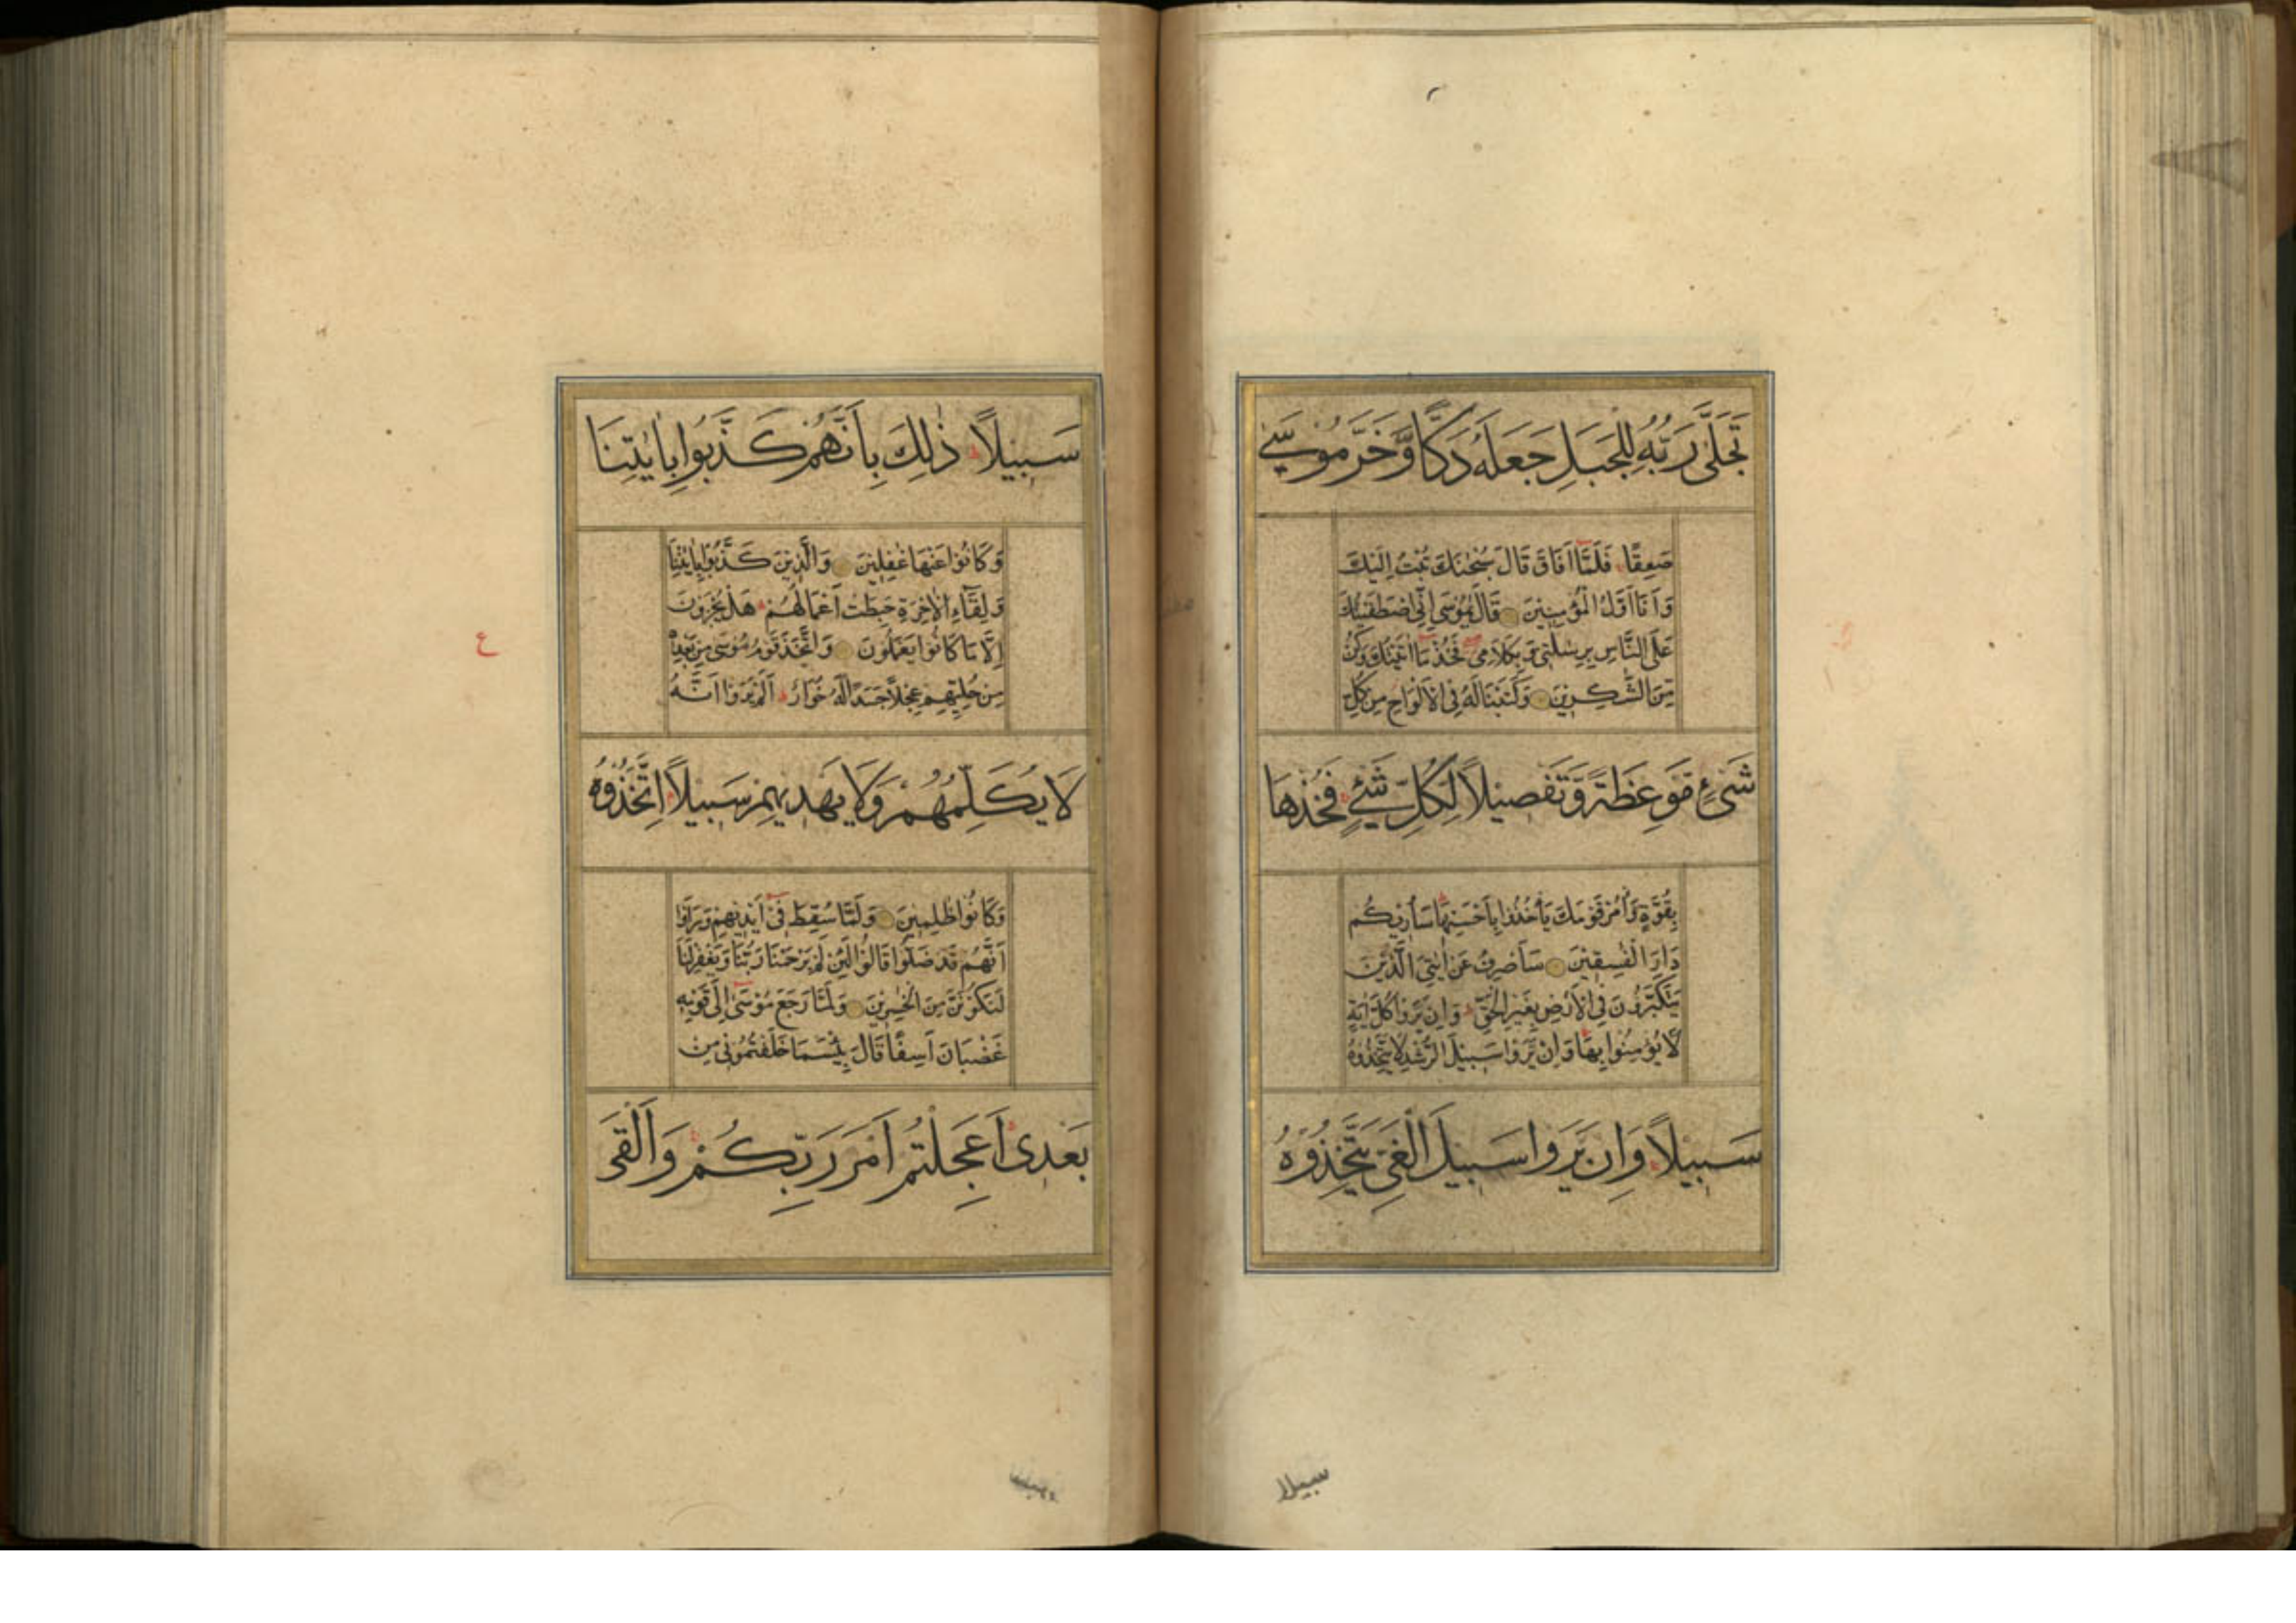 تَجَلّٰى رَبُّهُ لِلْجَبَلِ جَعَلَهُ دَكًّا وَّخَرَّ مُوْسٰى
صَعِقًا فَلَمَّا اَفَاقَ قَالَ سُبْحٰنَكَ تُبْتُ اِلَيْكَ
وَاَنَا اَوَّلُ الْمُؤْمِنِيْنَ قَالَ يٰمُوْسٰى اِنِّى اصْطَفَيْتُكَ
عَلَى النَّاسِ بِرِسٰلٰتِىْ وَبِكَلَامِىْ فَخُذْ مَا اٰتَيْتُكَ وَكُنْ
مِّنَ الشّٰكِرِيْنَ وَكَتَبْنَا لَهُ فِى الْاَلْوَاحِ مِنْ كُلِّ
شَىْءٍ مَّوْعِظَةً وَّتَفْصِيْلًا لِّكُلِّ شَىْءٍ فَخُذْهَا
بِقُوَّةٍ وَّاْمُرْ قَوْمَكَ يَاْخُذُوْا بِاَحْسَنِهَا سَاُورِيْكُمْ
دَارَ الْفٰسِقِيْنَ سَاَصْرِفُ عَنْ اٰيٰتِىَ الَّذِيْنَ
يَتَكَبَّرُوْنَ فِى الْاَرْضِ بِغَيْرِ الْحَقِّ وَاِنْ يَّرَوْا كُلَّ اٰيَةٍ
لَّا يُؤْمِنُوْا بِهَا وَاِنْ يَّرَوْا سَبِيْلَ الرُّشْدِ لَا يَتَّخِذُوْهُ
سَبِيْلًا وَاِنْ يَّرَوْا سَبِيْلَ الْغَىِّ يَتَّخِذُوْهُ
سبيلا
سَبِيْلًا ذٰلِكَ بِاَنَّهُمْ كَذَّبُوْا بِاٰيٰتِنَا
وَكَانُوْا عَنْهَا غٰفِلِيْنَ وَالَّذِيْنَ كَذَّبُوْا بِاٰيٰتِنَا
وَلِقَاءِ الْاٰخِرَةِ حَبِطَتْ اَعْمَالُهُمْ هَلْ يُجْزَوْنَ
اِلَّا مَا كَانُوْا يَعْمَلُوْنَ وَاتَّخَذَ قَوْمُ مُوْسٰى مِنْ بَعْدِهٖ
مِنْ حُلِيِّهِمْ عِجْلًا جَسَدًا لَّهُ خُوَارٌ اَلَمْ يَرَوْا اَنَّهُ
لَا يُكَلِّمُهُمْ وَلَا يَهْدِيْهِمْ سَبِيْلًا اِتَّخَذُوْهُ
وَكَانُوْا ظٰلِمِيْنَ وَلَمَّا سُقِطَ فِىْ اَيْدِيْهِمْ وَرَاَوْا
اَنَّهُمْ قَدْ ضَلُّوْا قَالُوْا لَئِنْ لَّمْ يَرْحَمْنَا رَبُّنَا وَيَغْفِرْ لَنَا
لَنَكُوْنَنَّ مِنَ الْخٰسِرِيْنَ وَلَمَّا رَجَعَ مُوْسٰى اِلٰى قَوْمِهٖ
غَضْبَانَ اَسِفًا قَالَ بِئْسَمَا خَلَفْتُمُوْنِىْ مِنْ
بَعْدِىْ اَعَجِلْتُمْ اَمْرَ رَبِّكُمْ وَاَلْقَى
ع